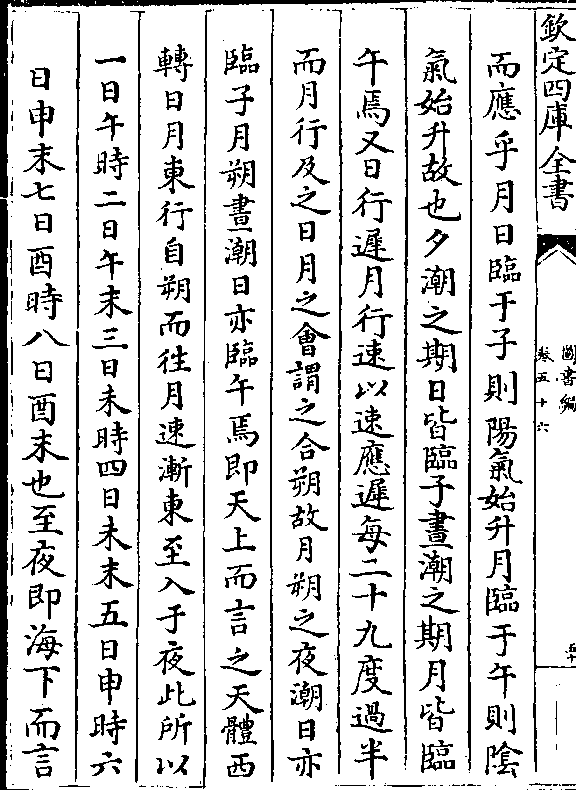 欽定四庫全書
圖書編
卷五十六
五十
而應乎月日臨于子則陽氣始升月臨于午則陰
氣始升故也夕潮之期日皆臨子晝潮之期月皆臨
午焉又日行遲月行速以速應遲每二十九度過半
而月行及之日月之會謂之合朔故月朔之夜潮日亦
臨子月朔晝潮日亦臨午焉即天上而言之天體西
轉日月東行自朔而徃月速漸東至入于夜此所以
一日午時二日午末三日未時四日未末五日申時六
日申末七日酉時八日酉末也至夜即海下而言